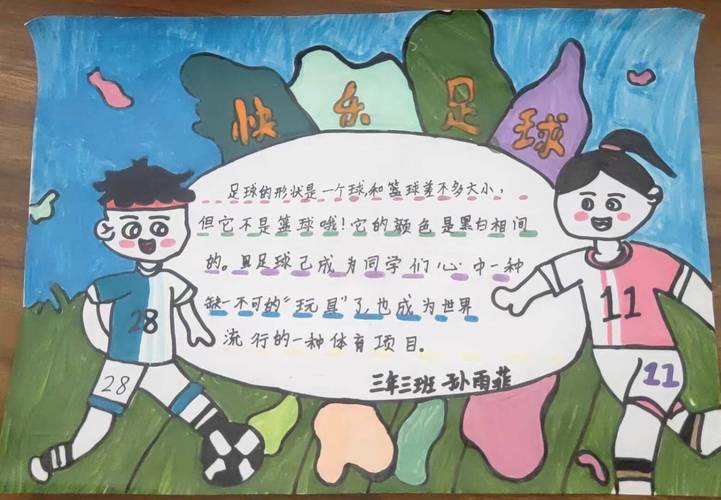 快乐足球
足球的形状是一个球,和篮球差不多大小,
但它不是篮球哦!它的颜色是黑白相间
的。且足球已成为同学们心中一种
缺一不可的“玩具”了,也成为世界
流行的一种体育项目。
三年三班 孙雨菲
28
28
11
11